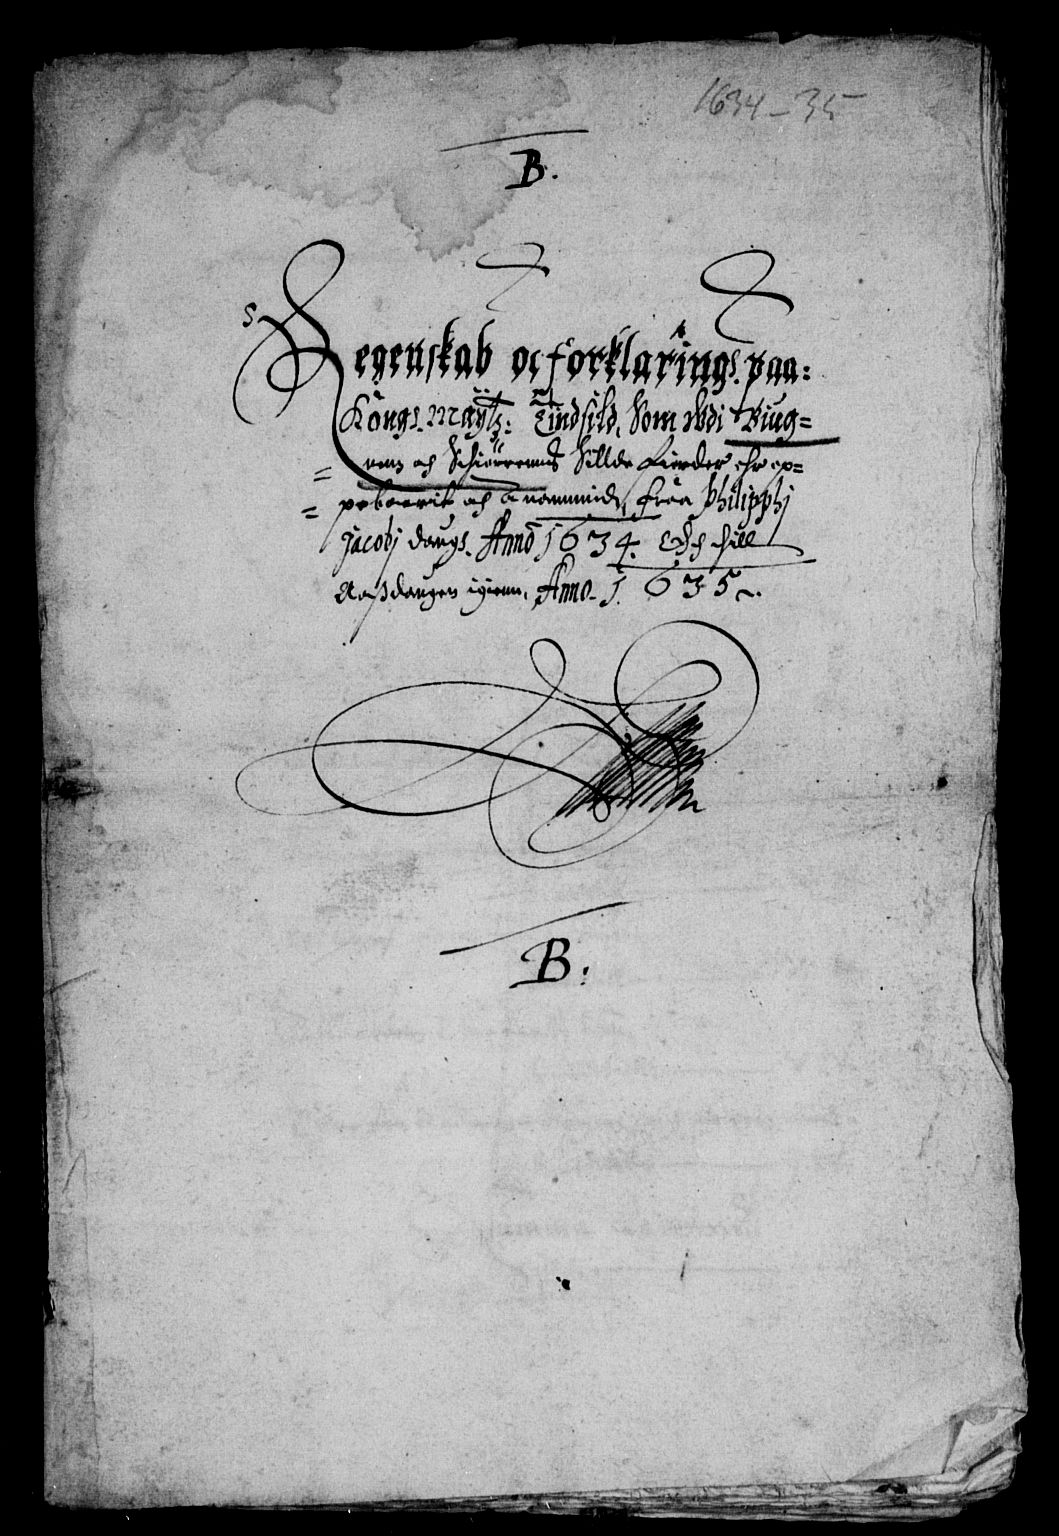 1634-35
B.
Regenskab oc forklaring paa:
Kong. Maytz: Tindsild, Som udi Biug=
=nens och Schiørrenns Sillde fierder ehr op=
=peboerit och anammmid, fraa Philipphj
Jacobj daugs. Anno 1634. Och thill
Aaßdaugen igienn, Anno. 1635.
B.